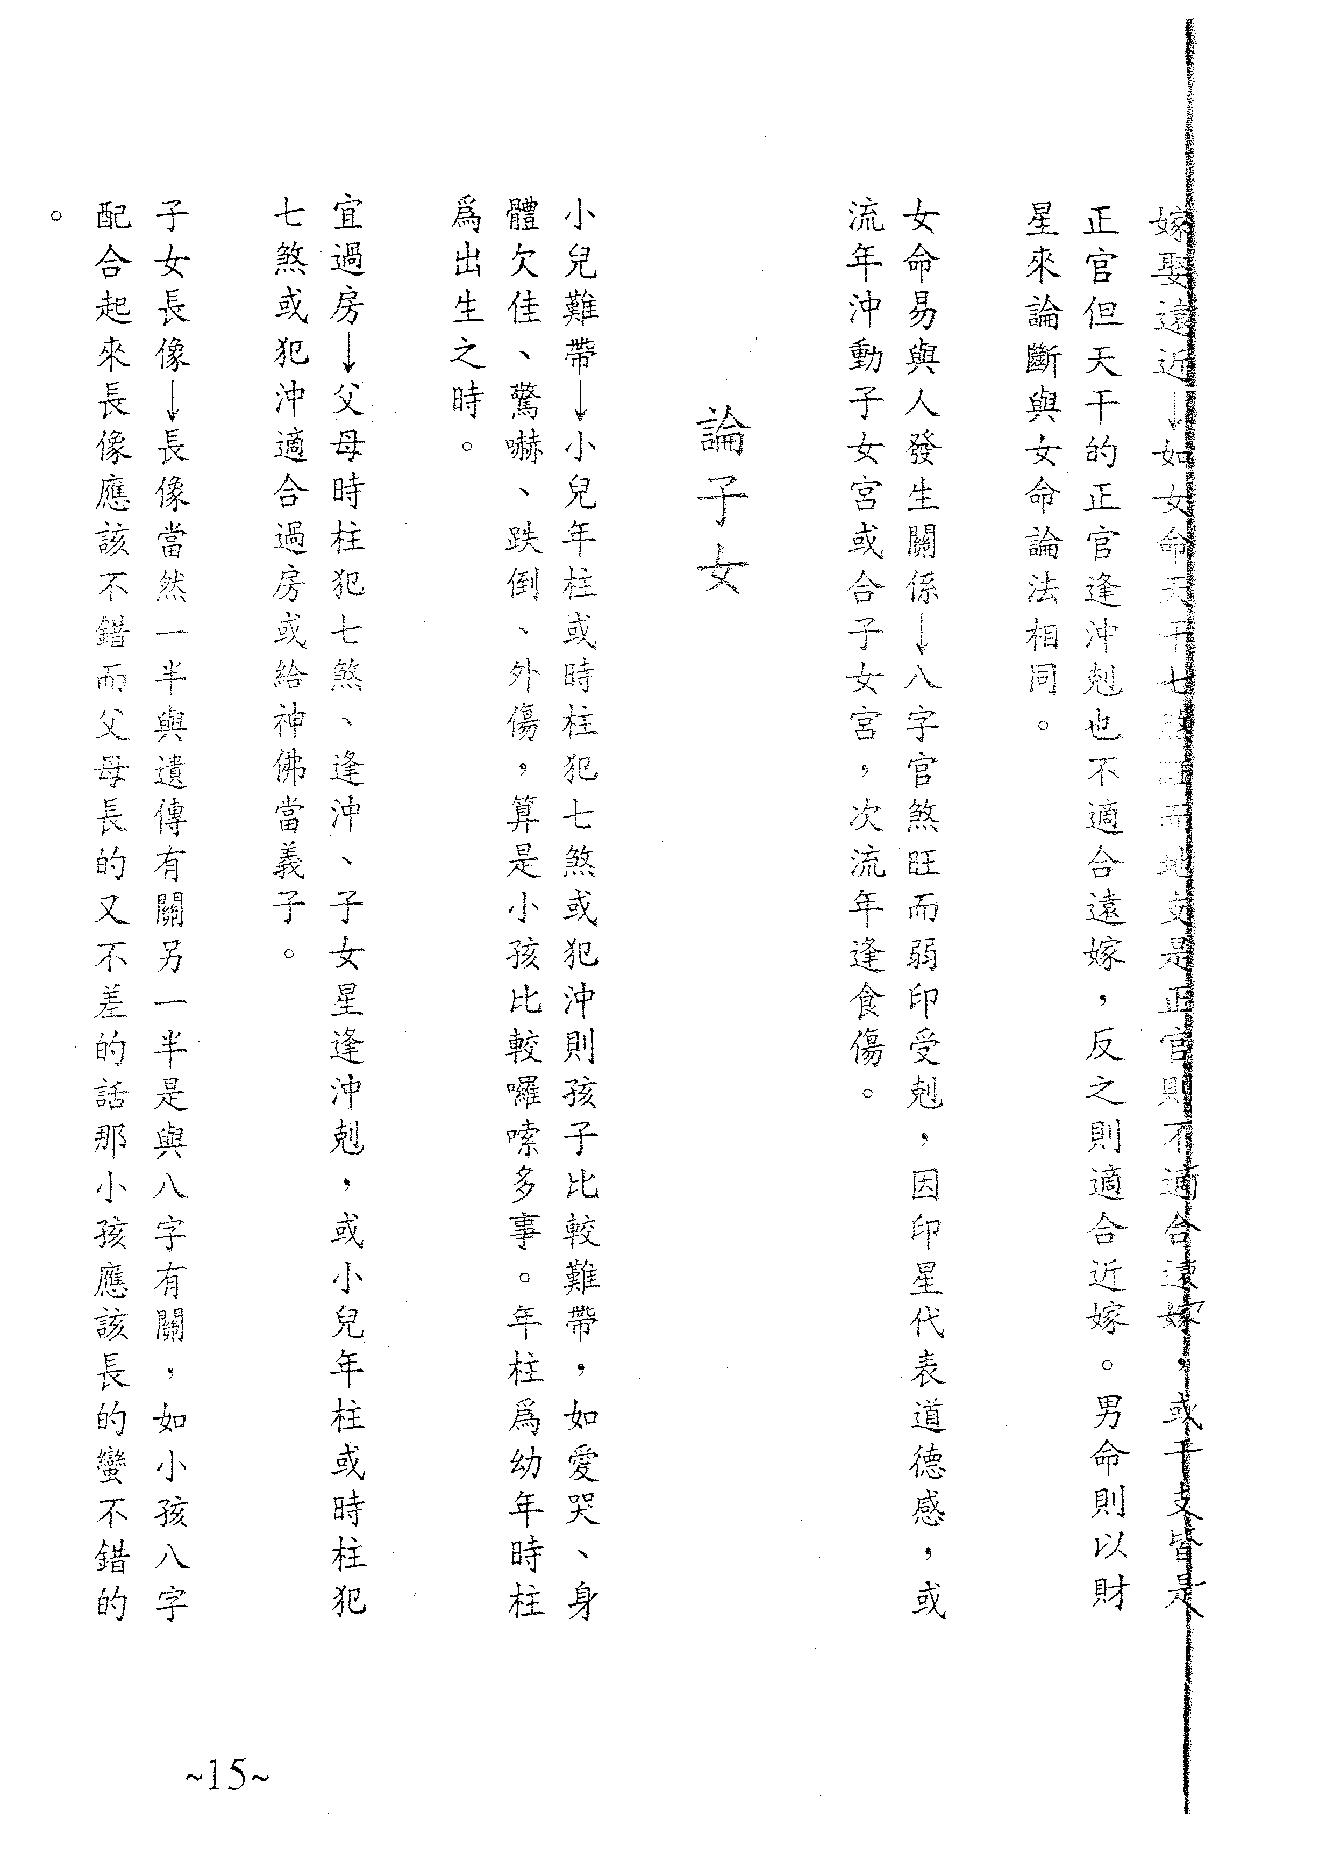 嫁娶遠近→如女命天干七煞而地支是正官則不適合遠嫁，或干支皆是
正官但天干的正官逢沖剋也不適合遠嫁，反之則適合近嫁。男命則以財
星來論斷與女命論法相同。
女命易與人發生關係→八字官煞旺而弱印受剋，因印星代表道德感，或
流年沖動子女宮或合子女宮，次流年逢食傷。
論子女
小兒難帶→小兒年柱或時柱犯七煞或犯沖則孩子比較難帶，如愛哭、身
體欠佳、驚嚇、跌倒、外傷，算是小孩比較囉嗦多事。年柱爲幼年時柱
爲出生之時。
宜過房→父母時柱犯七煞、逢沖、子女星逢沖剋，或小兒年柱或時柱犯
七煞或犯沖適合過房或給神佛當義子。
子女長像→長像當然一半與遺傳有關另一半是與八字有關，如小孩八字
配合起來長像應該不錯而父母長的又不差的話那小孩應該長的蠻不錯的
。
~15~